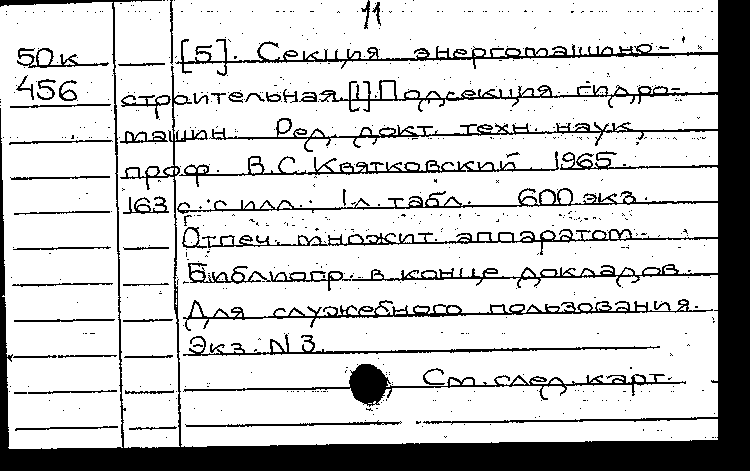 11
50к [5]. Секция энергомашино-
456 строительная.[1].Подсекция гидро-
машин. Ред. докт. техн. наук,
проф. В.С. Квятковский 1965.
163 с. с илл.; 1л. табл. 600 экз.
Отпеч. множит. аппаратом.
Библиогр. в конце докладов.
Для служебного пользования.
Экз. N 3.
См. след. карт.